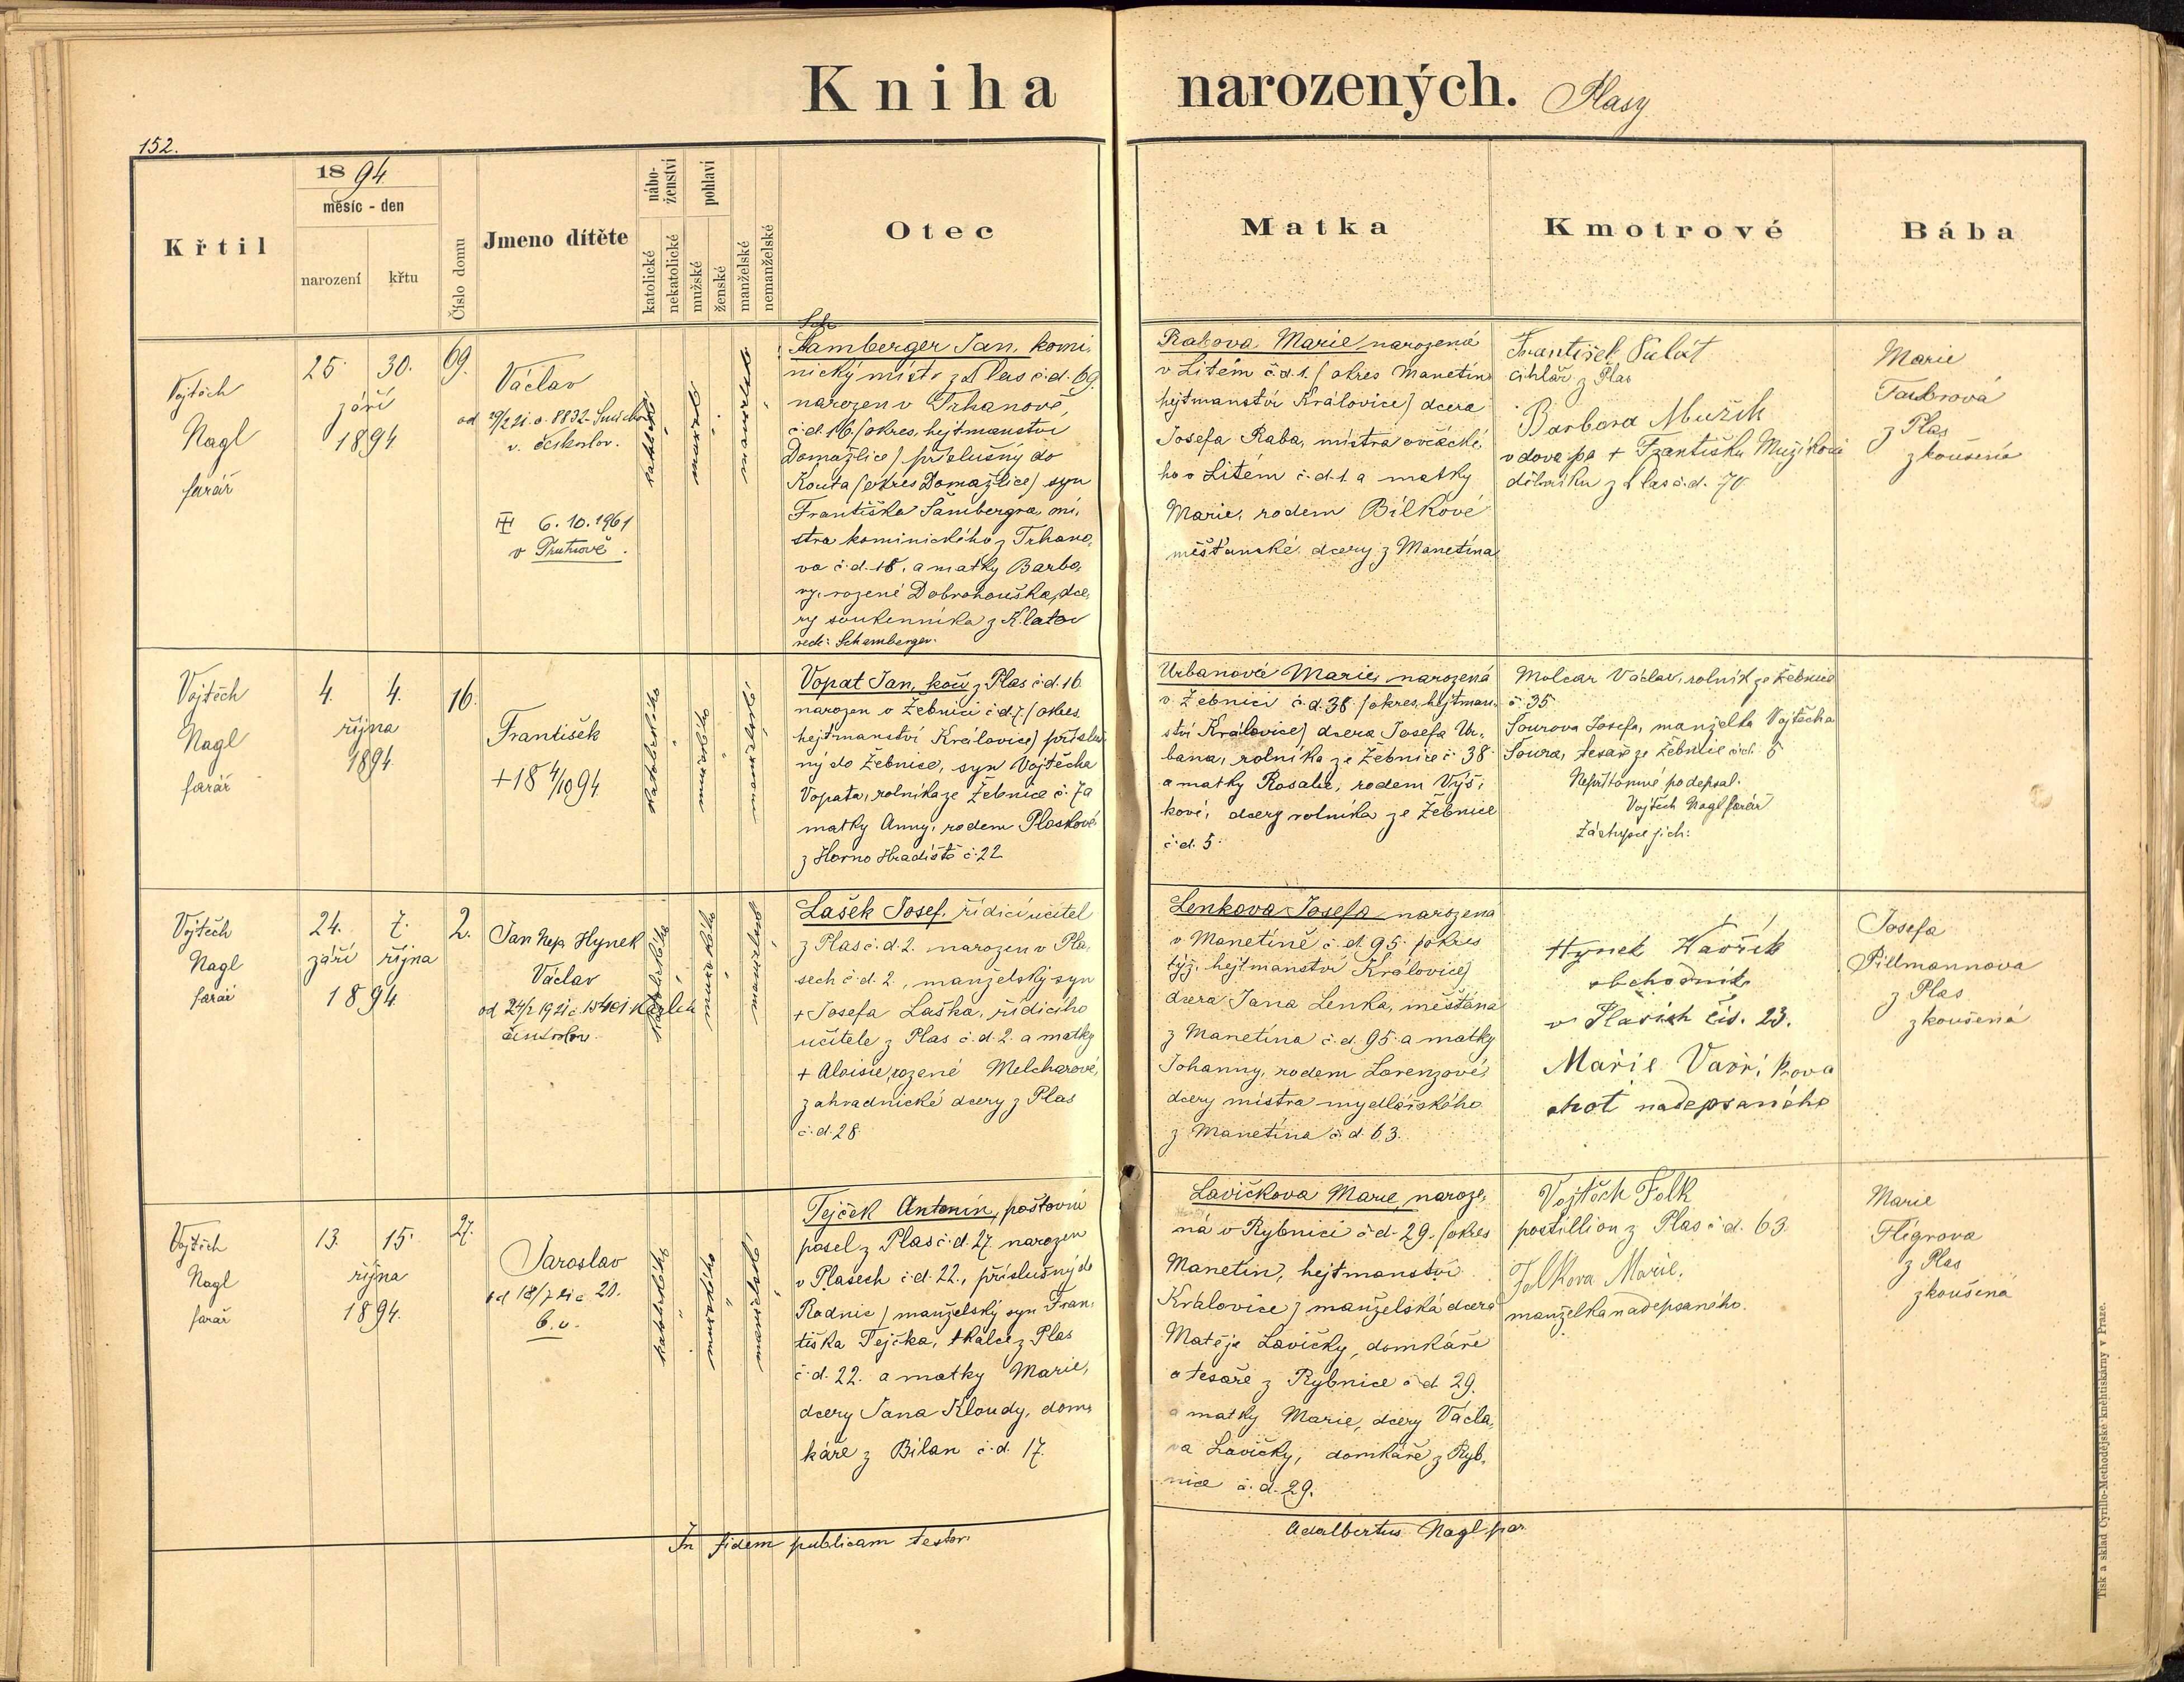 Kniha narozených. Plasy
152.
Křtil
1894
měsíc - den
narození
křtu
Číslo domu
Jmeno dítěte
nábo-
ženství
katolické
nekatolické
pohlaví
mužské
ženské
manželské
nemanželské
Otec
Matka
Kmotrové
Bába
Vojtěch
Nagl
farář
25. 30.
září
1894
69.
Václav
v. českoslov.
6. 10. 1961
v Trutnově.
Sch
Šamberger Jan, komi-
nický mistr z Plas č. d. 69.
narozen v Trhanově,
č. d. 16. (okres, hejtmanství
Domažlice) příslušný do
Kouta (okres Domažlice) syn
Františka Šambergra, mi-
stra kominického z Trhano-
va č. d. 18. a matky Barbo-
ry, rozené Dobrohouška, dce-
ry soukenníka z Klatov
recte: Schamberger.
Rabova Marie, narozená
v Litém č. d. 1. (okres Manetín
hejtmanství Královice) dcera
Josefa Raba, mistra ovčácké-
ho v Litém č. d. 1. a matky
Marie, rodem Bílkové
měšťanské dcery z Manetína
František Palát
cihlář z Plas
Barbora Mužík
vdova pa + Františku Mužíkovi
dělníku z Plas č. d. 70
Marie
Taubrová
z Plas
zkoušená
Vojtěch
Nagl
farář
4. 4.
října
1894.
16.
František
+ 18 4/10 94
katolického
mužského
manželské
Vopat Jan, kočí z Plas č. d. 16
narozen v Žebnici č. d. 7. (okres,
hejtmanství Královice) přísluš-
ný do Žebnice, syn Vojtěcha
Vopata, rolníka ze Žebnice č. 7 a
matky Anny, rodem Plaskové
z Horno Hradiště č. 22
Urbanová Marie, narozená
v Žebnici č. d. 38. (okres, hejtman-
ství Královice) dcera Josefa Ur-
bana, rolníka ze Žebnice č. 38.
a matky Rosalie, rodem Výš-
kové, dcery rolníka ze Žebnice
č. d. 5.
Molcar Václav, rolník ze Žebnice
č. 35
Sourova Josefa, manželka Vojtěcha
Soura, tesaře ze Žebnice č. d. 5
Nepřítomné podepsal.
Vojtěch Nagl farář
Zástupce jich:
Vojtěch
Nagl
farář
24. 7.
září října
1894
2.
Jan Nep. Hynek
Václav
katolického
mužského
manželské
Lašek Josef, řídicí učitel
z Plas č. d. 2. narozen v Pla-
sech č. d. 2., manželský syn
+ Josefa Laška, řídicího
učitele z Plas č. d. 2. a matky
+ Aloisie, rozené Melcharové,
zahradnické dcery z Plas
č. d. 28
Lenkova Josefa narozena
v Manetíně č. d. 95. (okres
týž, hejtmanství Královice)
dcera Jana Lenka, měšťana
z Manetína č. d. 95. a matky
Johanny, rodem Lorenzové,
dcery mistra mydlářského
z Manetína č. d. 63.
Hynek Vavřík
obchodník
v Plasích čís. 23.
Marie Vavříkova
choť nadepsaného
Josefa
Pillmannova
z Plas
zkoušená
Vojtěch
Nagl
farář
13. 15.
října
1894.
27.
Jaroslav
b. v.
katolického
mužského
manželské
Tejček Antonín, poštovní
posel z Plas č. d. 27. narozen
v Plasech č. d. 22., příslušný do
Radnic / manželský syn Fran-
tiška Tejčka, tkalce z Plas
č. d. 22. a matky Marie,
dcery Jana Kloudy, dom-
káře z Bílan č. d. 17.
Lavičkova Marie, naroze-
ná v Rybnici č. d. 29. (okres
Manetín, hejtmanství
Královice) manželská dcera
Matěje Lavičky, domkáře
a tesaře z Rybnice č. d. 29.
a matky Marie, dcery Václa-
va Lavičky, domkáře z Ryb-
nice č. d. 29.
Vojtěch Folk
postillion z Plas č. d. 63.
Folkova Marie,
manželka nadepsaného.
Marie
Fligrova
z Plas
zkoušená
In fidem publicam testor.
Adalbertus Nagl par.
Tisk a sklad Cyrillo-Methodějské knihtiskárny v Praze.